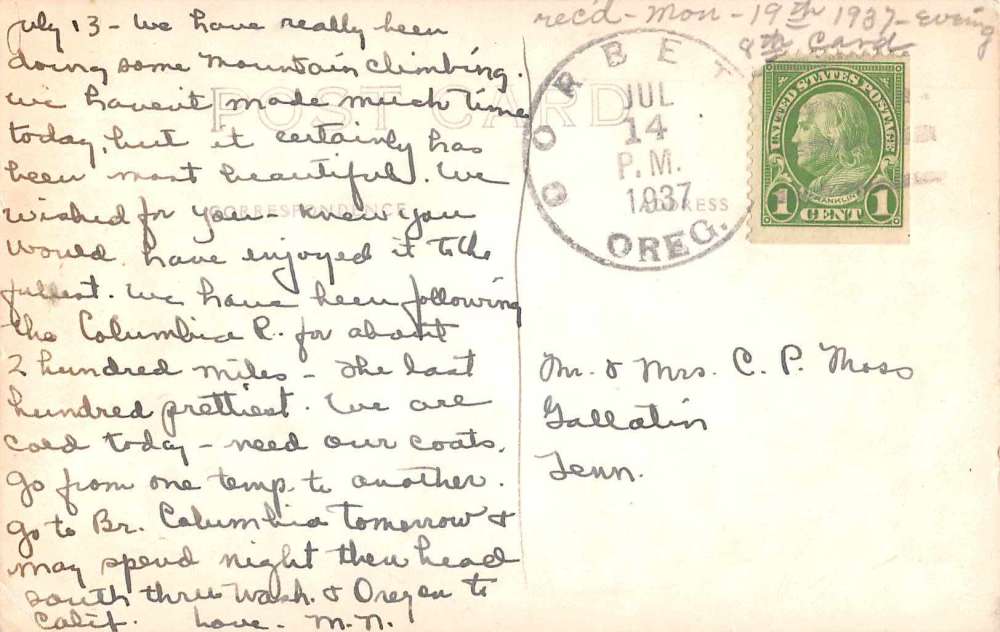 July 13 - We have really been
doing some mountain climbing.
We haven't made much time
today, but it certainly has
been most beautiful. We
wished for you - knew you
would have enjoyed it to the
fullest. We have been following
the Columbia R. for about
2 hundred miles - The last
hundred prettiest. We are
cold today - need our coats.
Go from one temp. to another.
Go to Br. Columbia tomorrow &
may spend night then head
south thru Wash. & Oregon to
Calif. Love - M.N.
POST CARD
CORRESPONDENCE
ADDRESS
rec'd - Mon - 19th 1937 - evening
8th Card.
CORBET
JUL
14
P.M.
1937
OREG.
UNITED STATES POSTAGE
FRANKLIN
1 CENT 1
Mr. & Mrs. C. P. Moss
Gallatin
Tenn.